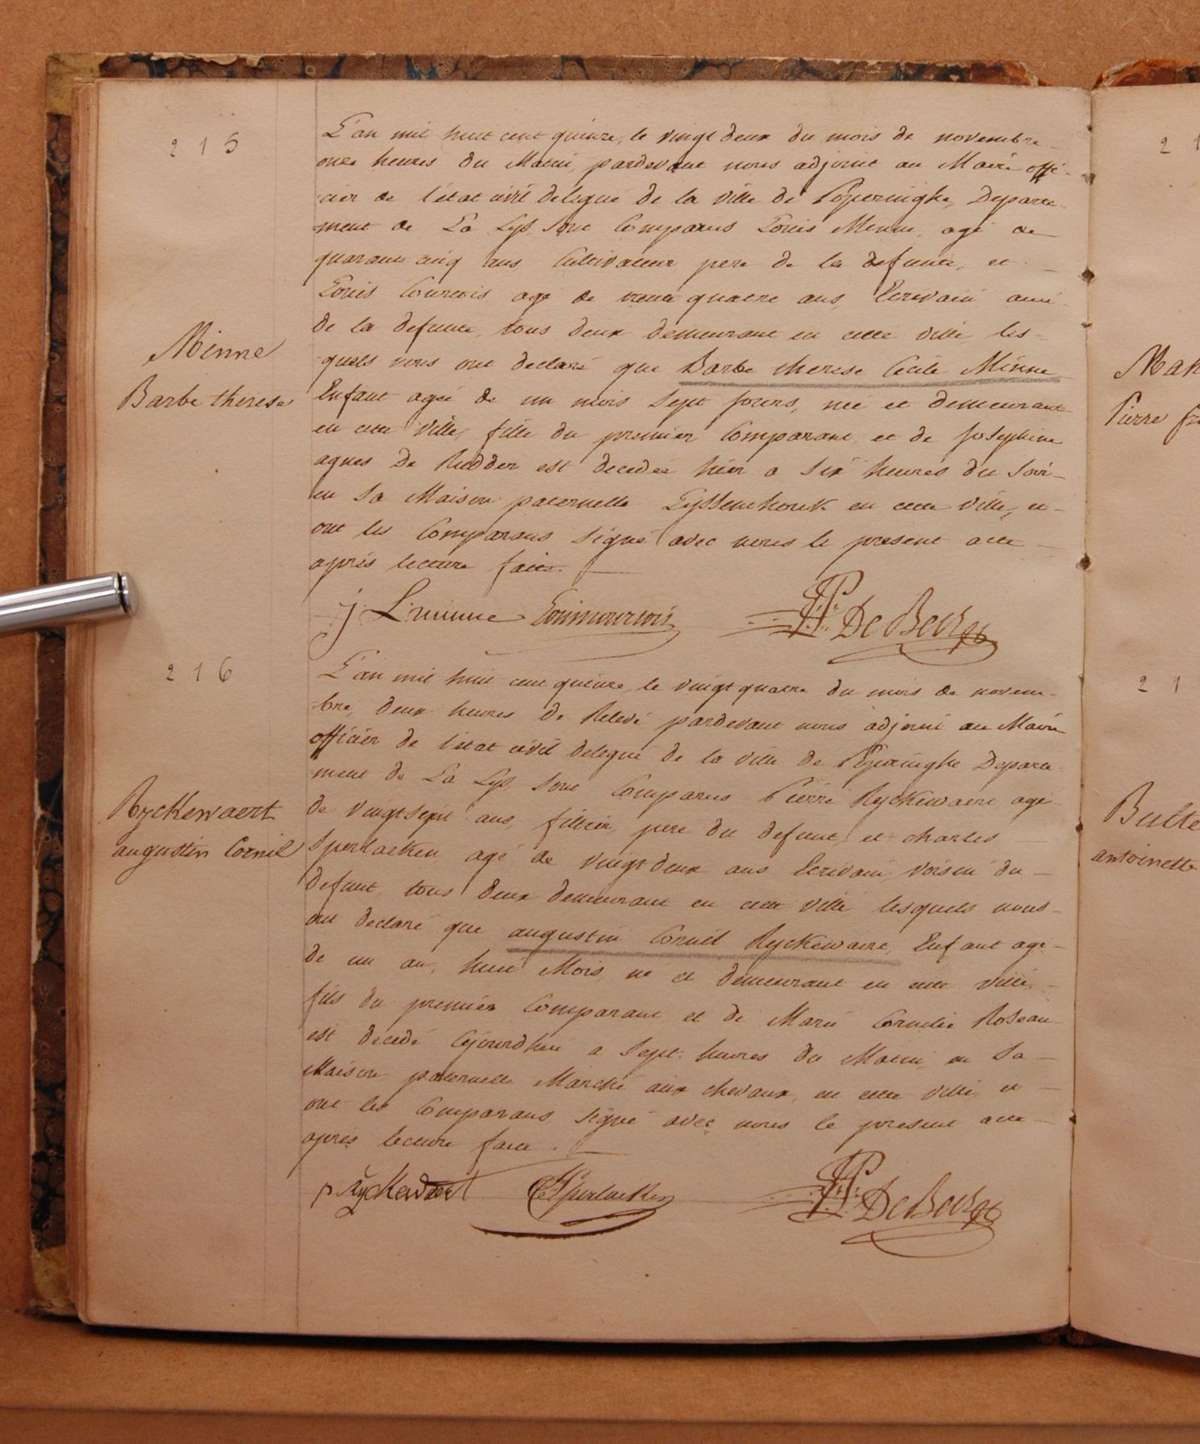 215
Minne
Barbe therese
L'an mil huit cent quinze, le vingt deux du mois de novembre
onze heures du Matin, pardevant nous adjoint au Maire offi-
cier de l'état civil delegué de la ville de Poperinghe, Departe-
ment de La Lys, sont Comparus Louis Minne, agé de
quarante cinq ans Cultivateur pere de la defunte, et
Louis Courtois agé de trente quatre ans, Ecrivain ami
de la defunte, tous deux demeurant en cette ville les-
quels nous ont declaré que Barbe therese Cécile Minne
Enfant agée de un mois sept jours, née et demeurant
en cette ville, fille du premier Comparant, et de Josephine
agnes De Ridder est decedée hier a six heures du Soir
en Sa Maison paternelle Eyssenhouk en cette ville, et
ont les Comparans Signé avec nous le present acte
après lecture faite.
j. L. minne Louis Courtois De Bo
216
Ryckewaert
augustin Cornil
L'an mil huit cent quinze, le vingt quatre du mois de novem-
bre, deux heures de Relevé pardevant nous adjoint au Maire
officier de l'état civil delegué de la ville de Poperinghe Departe-
ment de La Lys, sont Comparus Pierre Ryckewaert, agé
de vingt sept ans, pere du defunt, et charles
Sperlaeken, agé de vingt deux ans Ecrivain voisin du
defunt, tous deux demeurant en cette ville lesquels nous
ont declaré que augustin Cornil Ryckewaert, Enfant agé
de un an, huit Mois, né et demeurant en cette ville,
fils du premier Comparant et de Marie Cornelie Roseau
est decedé Cejourdhui a Sept heures du Matin, en Sa
Maison paternelle Marché aux chevaux, en cette ville, et
ont les Comparans Signé avec nous le present acte
après lecture faite.
p Ryckewaert C Sperlaeken De Bo
21
Mah
Pierre fr
21
Bulte
antoinette